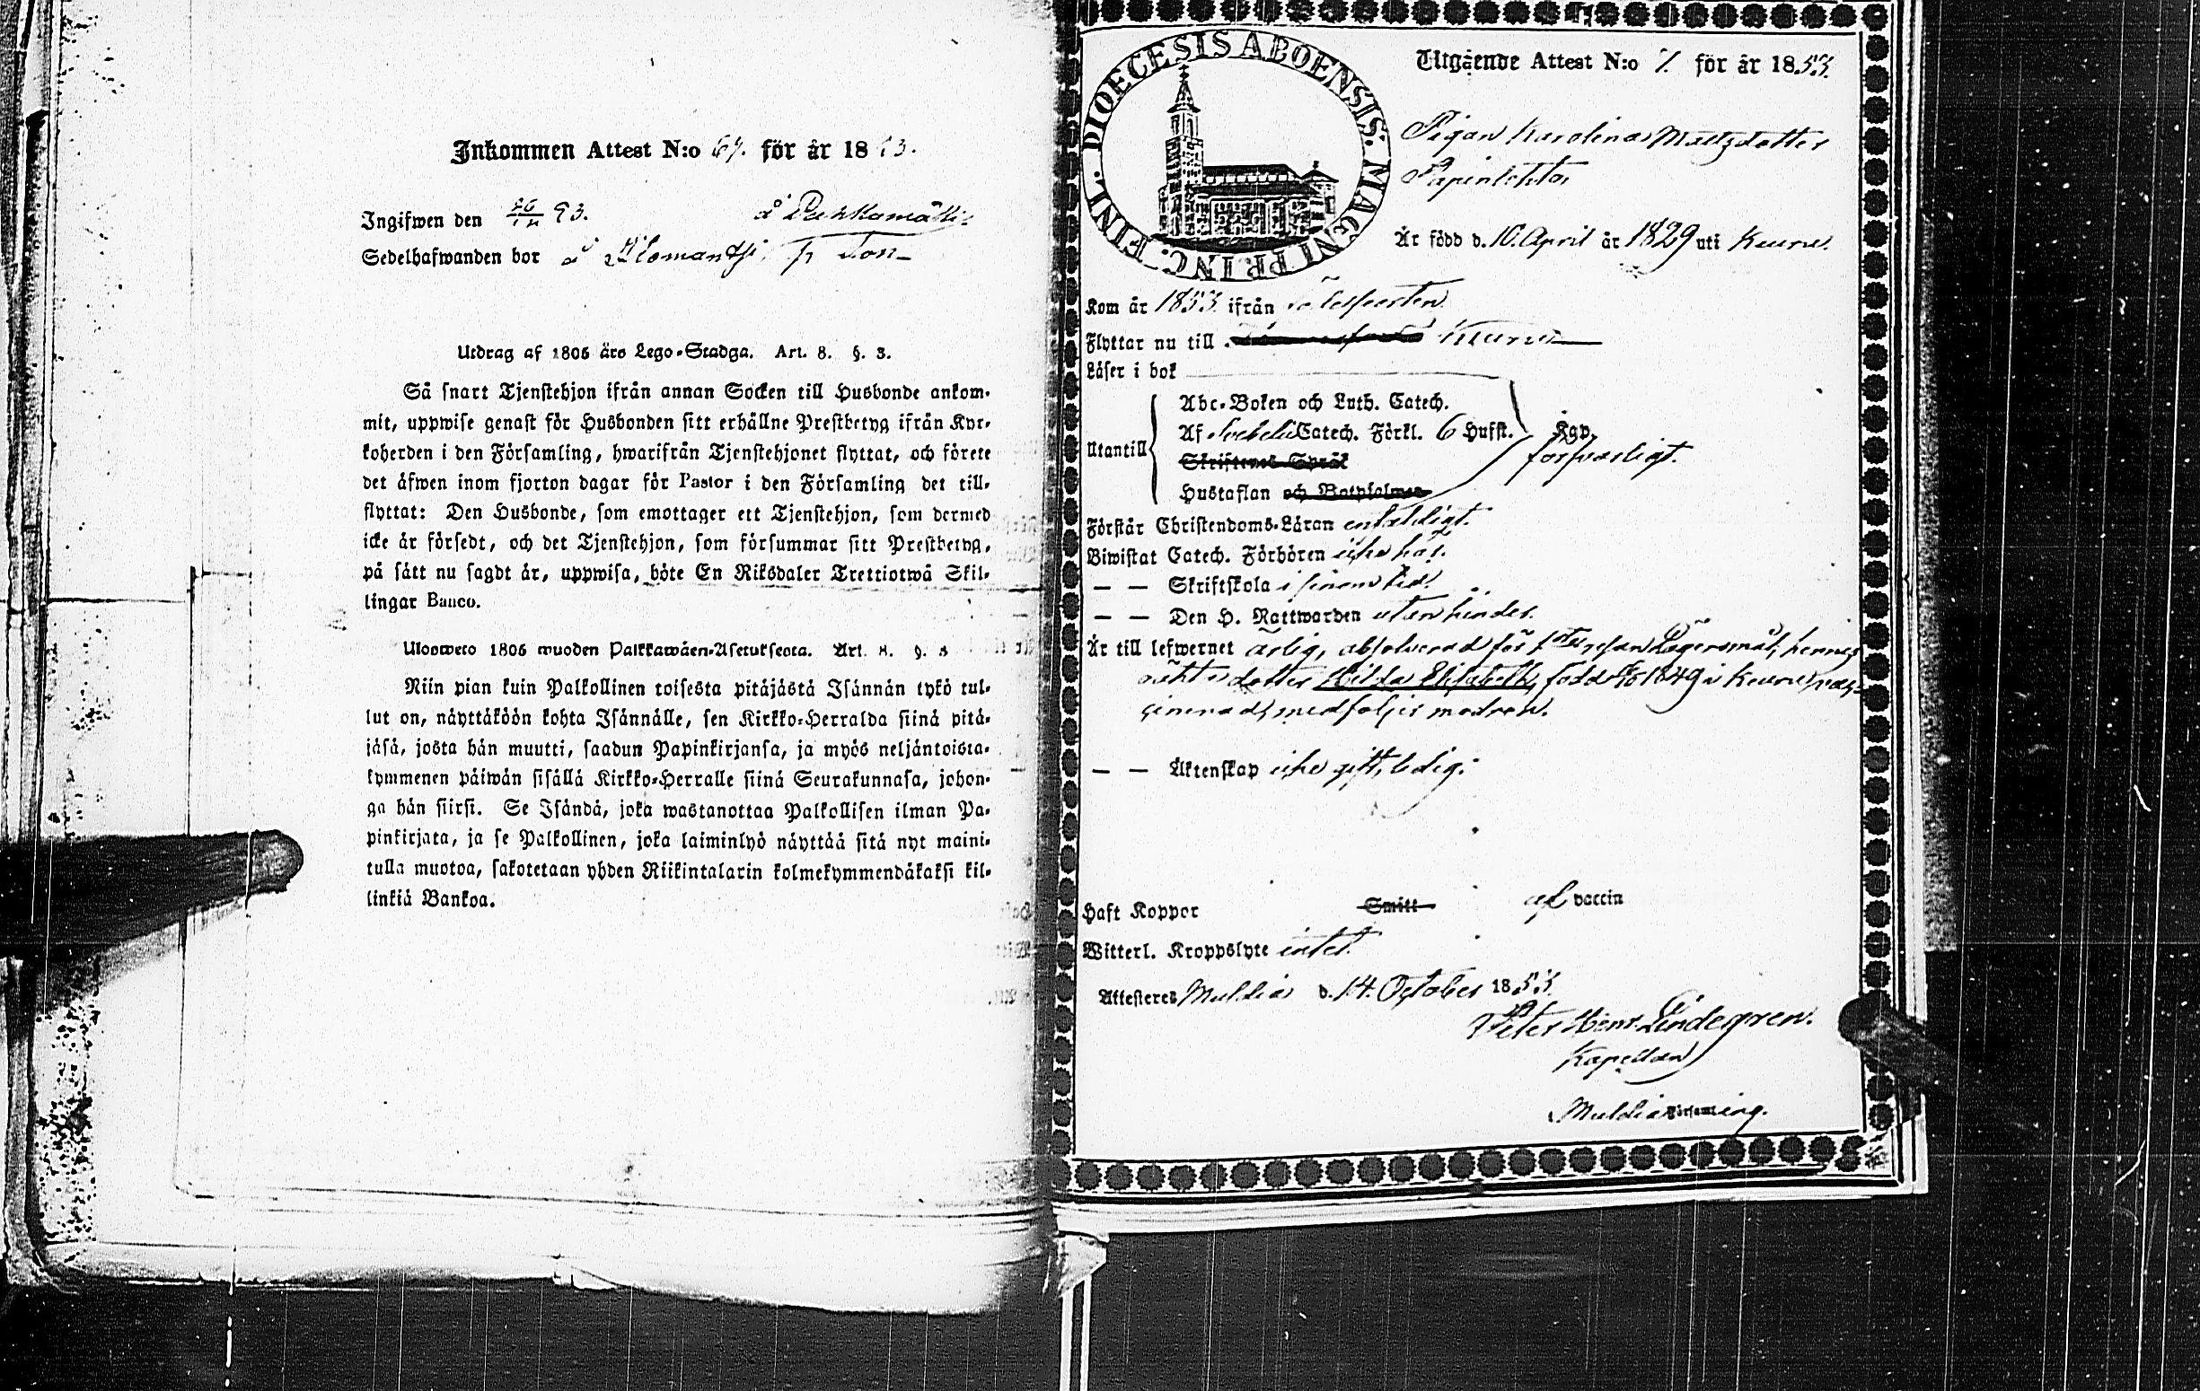 Inkommen Attest N:o 67. för år 18 53.
Ingifwen den 26/12 53. å Pahkamäki
Sedelhafwanden bor å
Utdrag af 1805 års Lego-Stadga. Art. 8. §. 3.
Så snart Tjenstehjon ifrån annan Socken till Husbonde ankom-
mit, uppwise genast för Husbonden sitt erhållne Prestbetyg ifrån Kyr-
koherden i den Församling, hwarifrån Tjenstehjonet flyttat, och förete
det äfwen inom fjorton dagar för Pastor i den Församling det till-
flyttat: Den Husbonde, som emottager ett Tjenstehjon, som dermed
icke är försedt, och det Tjenstehjon, som försummar sitt Prestbetyg,
på sätt nu sagdt är, uppwisa, böte En Riksdaler Trettiotwå Skil-
lingar Banco.
Ulosweto 1805 wuoden Palkkawäen-Asetuksesta. Art. 8. §. 3
Niin pian kuin Palkollinen toisesta pitäjästä Isännän tykö tul-
lut on, näyttäköön kohta Isännälle, sen Kirkko-Herralda siinä pitä-
jäsä, josta hän muutti, saadun Papinkirjansa, ja myös neljäntoista-
kymmenen päiwän sisällä Kirkko-Herralle siinä Seurakunnasa, johon-
ga hän siirsi. Se Isändä, joka wastanottaa Palkollisen ilman Pa-
pinkirjata, ja se Palkollinen, joka laiminlyö näyttää sitä nyt maini-
tulla muotoa, sakotetaan yhden Riikintalarin kolmekymmendäkaksi kil-
linkiä Bankoa.
DIOECESIS ABOENSIS. MAGNI PRINC. FINL.
Utgående Attest N:o 7. för år 1853.
Pigan Karolina Mattsdotter
Är född d. 10. April år 1829 uti Keuru.
Kom år 1853 ifrån
Flyttar nu till Keuru
Läser i bok
Utantill
Abc-Boken och Luth. Catech.
Af Svebelii Catech. Förkl. 6 Hufst. Kap.
Skriftenes Språk försvarligt.
Hustaflan och Botpsalmer
Förstår Christendoms-Läran enfaldigt.
Biwistat Catech. Förhören icke här.
— — Skriftskola i sinom tid.
— — Den H. Nattwarden utan hinder.
Är till lefwernet ärlig, absolverad för 1sta resan Lägersmål, hennes
oäkta dotter Hilda Elisabeth, född 1849 i Keuru, vac-
cinerad, medföljer modren.
— — Äktenskap icke gift, ledig.
Haft Koppor Smitt af vaccin
Witterl. Kroppslyte intet.
Attesteres Muldia d. 14. October 1853.
Peter Henr. Lindegren.
Kapellan
Muldia Församling.